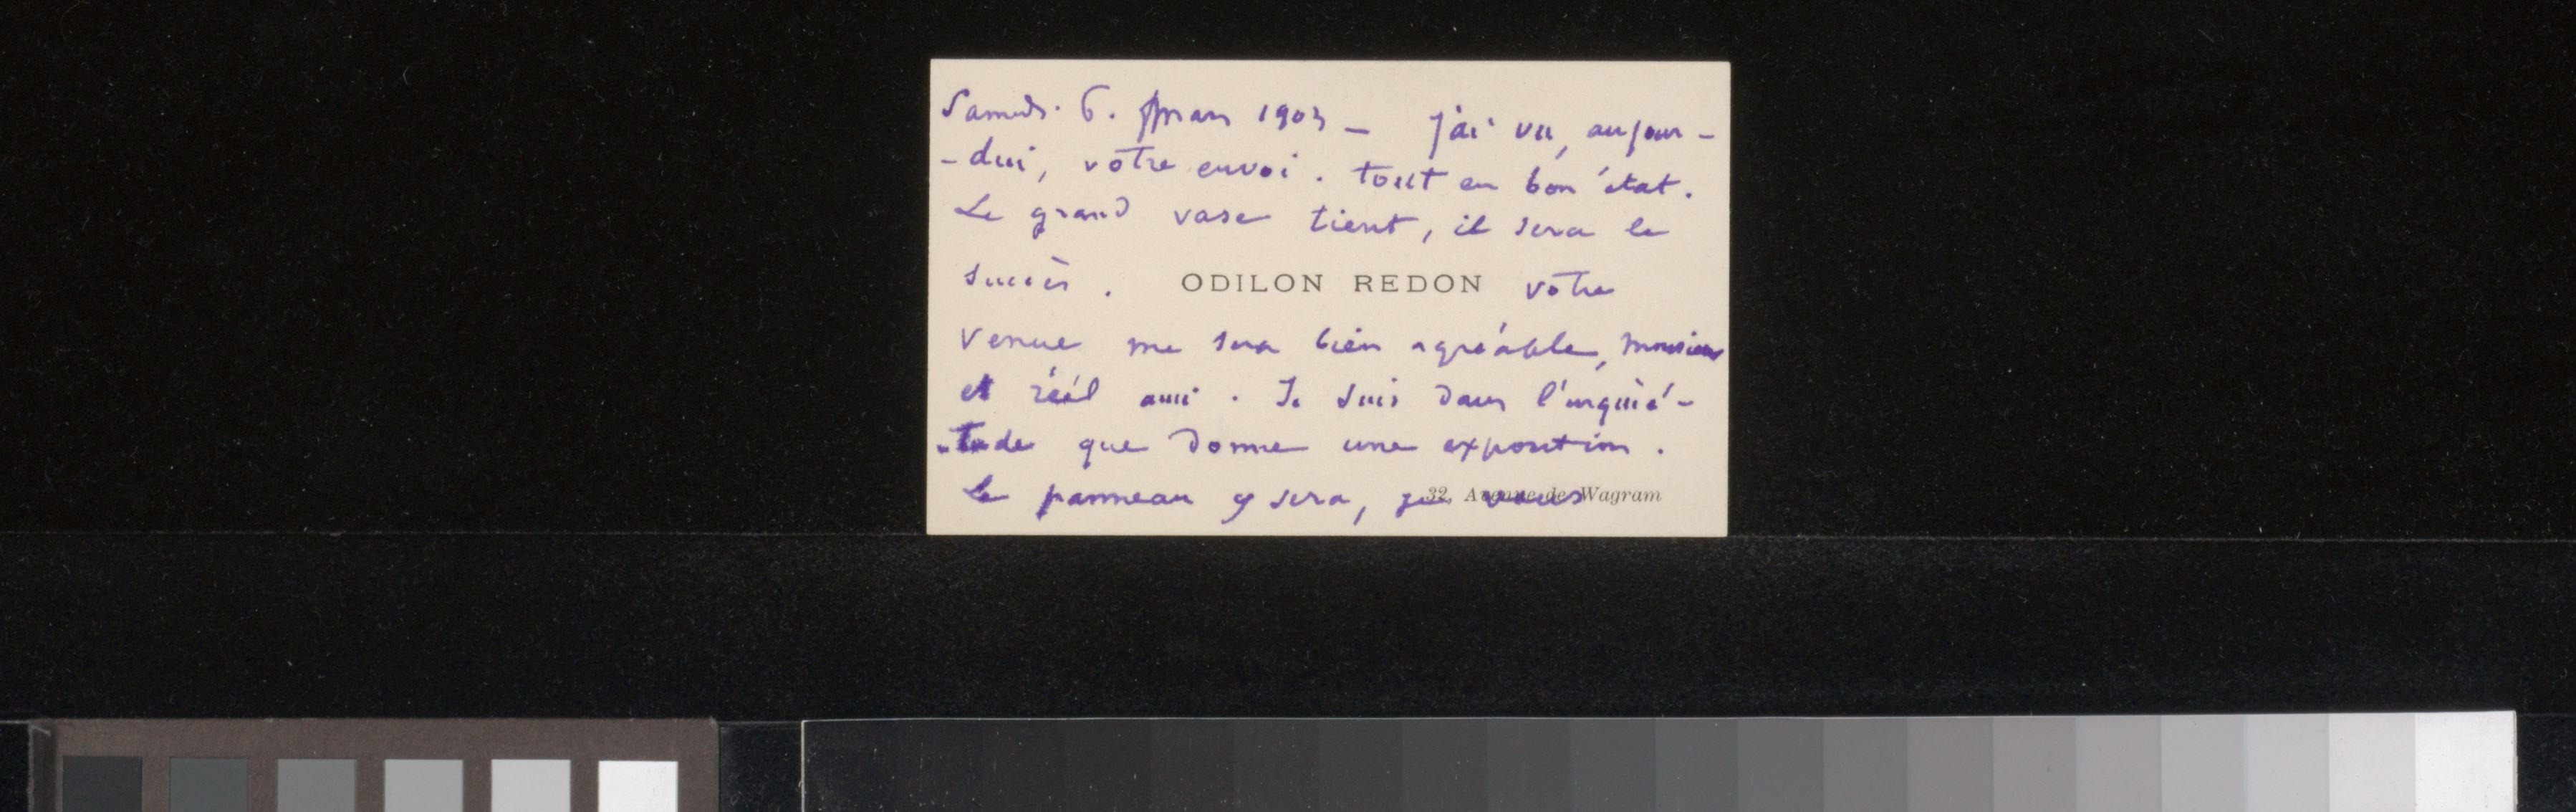 Samedi 6. mars 1903 – j'ai vu, aujour-
-dui, votre envoi. tout en bon état.
Le grand vase tient, il sera le
succès. ODILON REDON votre
venue me sera bien agréable, monsieur
et réél ami. Je suis dans l'inquié-
-tude que donne une exposition.
Le panneau y sera, je vous
32, Avenue de Wagram